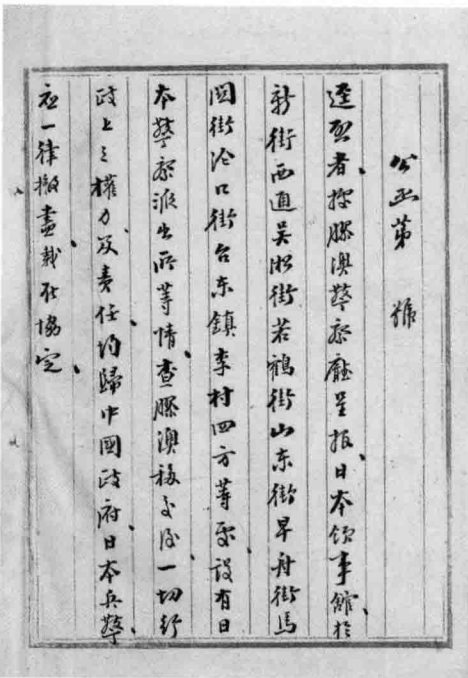 公函第 號
逕啟者據膠澳警察廳呈報日本領事館於
新街西通吳淞街若鶴街山東街早舟街馬
關街冶口街台東鎮李村四方等處設有日
本警察派出所等情查膠澳移交後一切行
政上之權力及責任均歸中國政府日本兵警
應一律撤盡載在協定